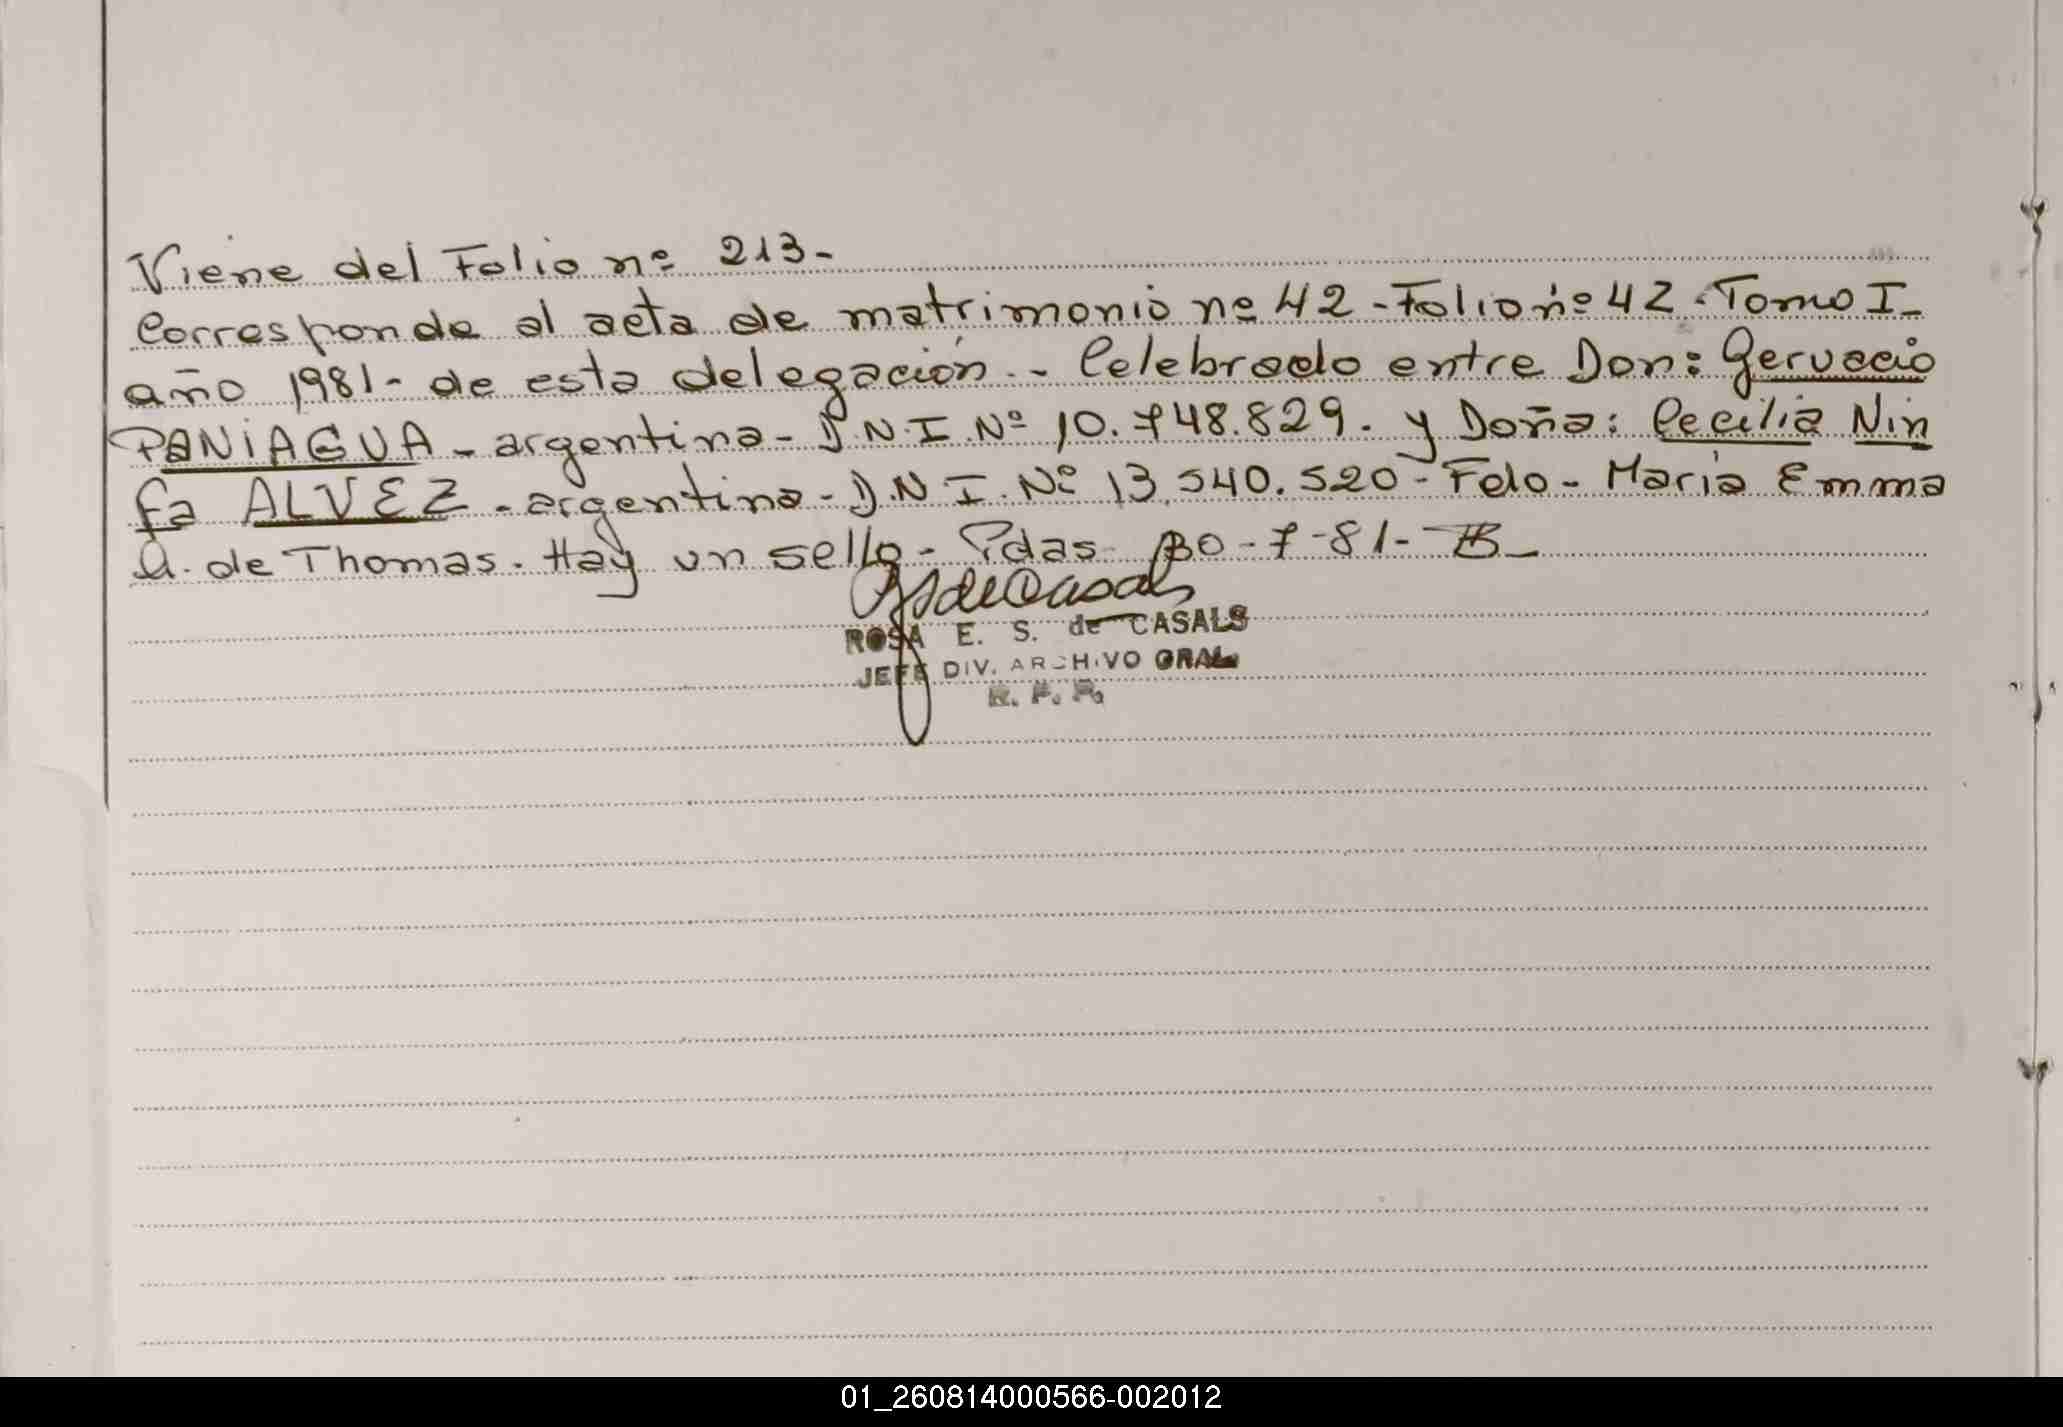 Viene del Folio nº 213-
Corresponde al acta de matrimonio nº 42 - Folio nº 42 - Tomo I -
año 1981 - de esta delegación. - Celebrado entre Don: Gervacio
PANIAGUA - argentino - D.N.I. Nº 10.748.829. y Doña: Cecilia Nin
fa ALVEZ - argentina - D.N.I. Nº 13.540.520 - Fdo - María Emma
de Thomas. Hay un sello - Pdas 30-7-81-
ROSA E. S. de CASALS
JEFE DIV. ARCHIVO GRAL.
R. P. P.
01_260814000566-002012